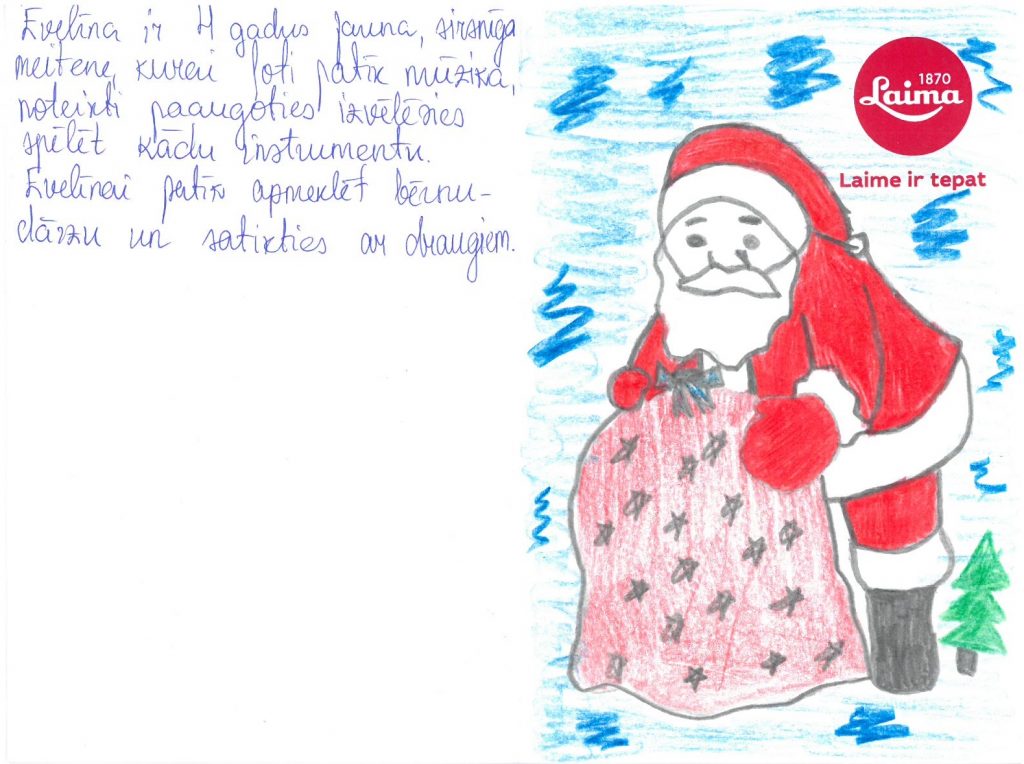 Evelīna ir 4 gadus jauna, sirsnīga
meitene, kurai ļoti patīk mūzika,
noteikti paaugoties izvēlēsies
spēlēt kādu instrumentu.
Evelīnai patīk apmeklēt bērnu-
dārzu un satikties ar draugiem.
1870
Laima
Laime ir tepat